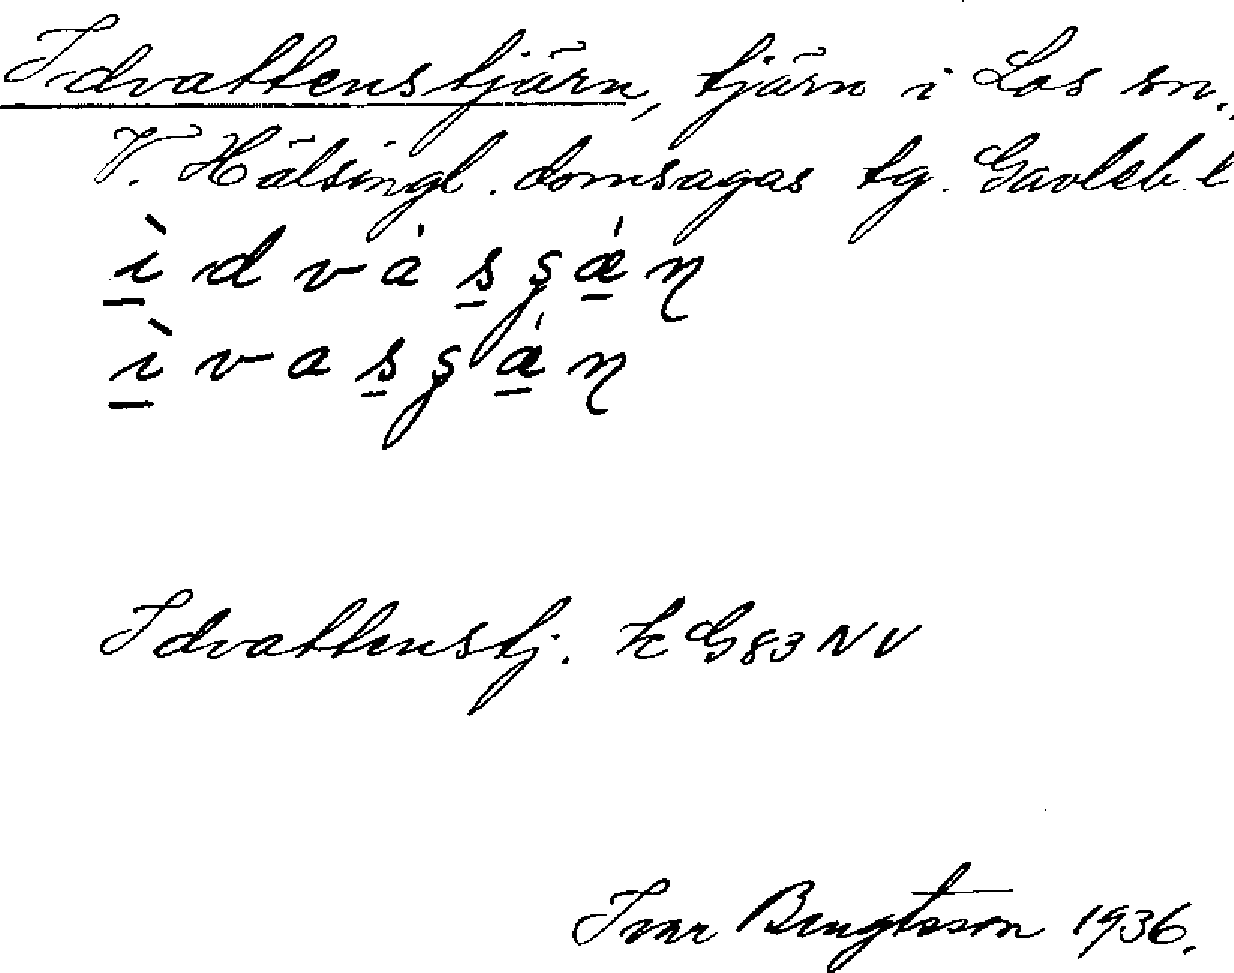 Idvattenstjärn, tjärn i Los sn.,
V. Hälsingl. domsagas tg. Gävleb. l
ì d v á s ş ǽ ɳ
ì v a s ş ǽ ɳ
Idvattenstj. K G83NV
Ivar Bengtsson 1936.